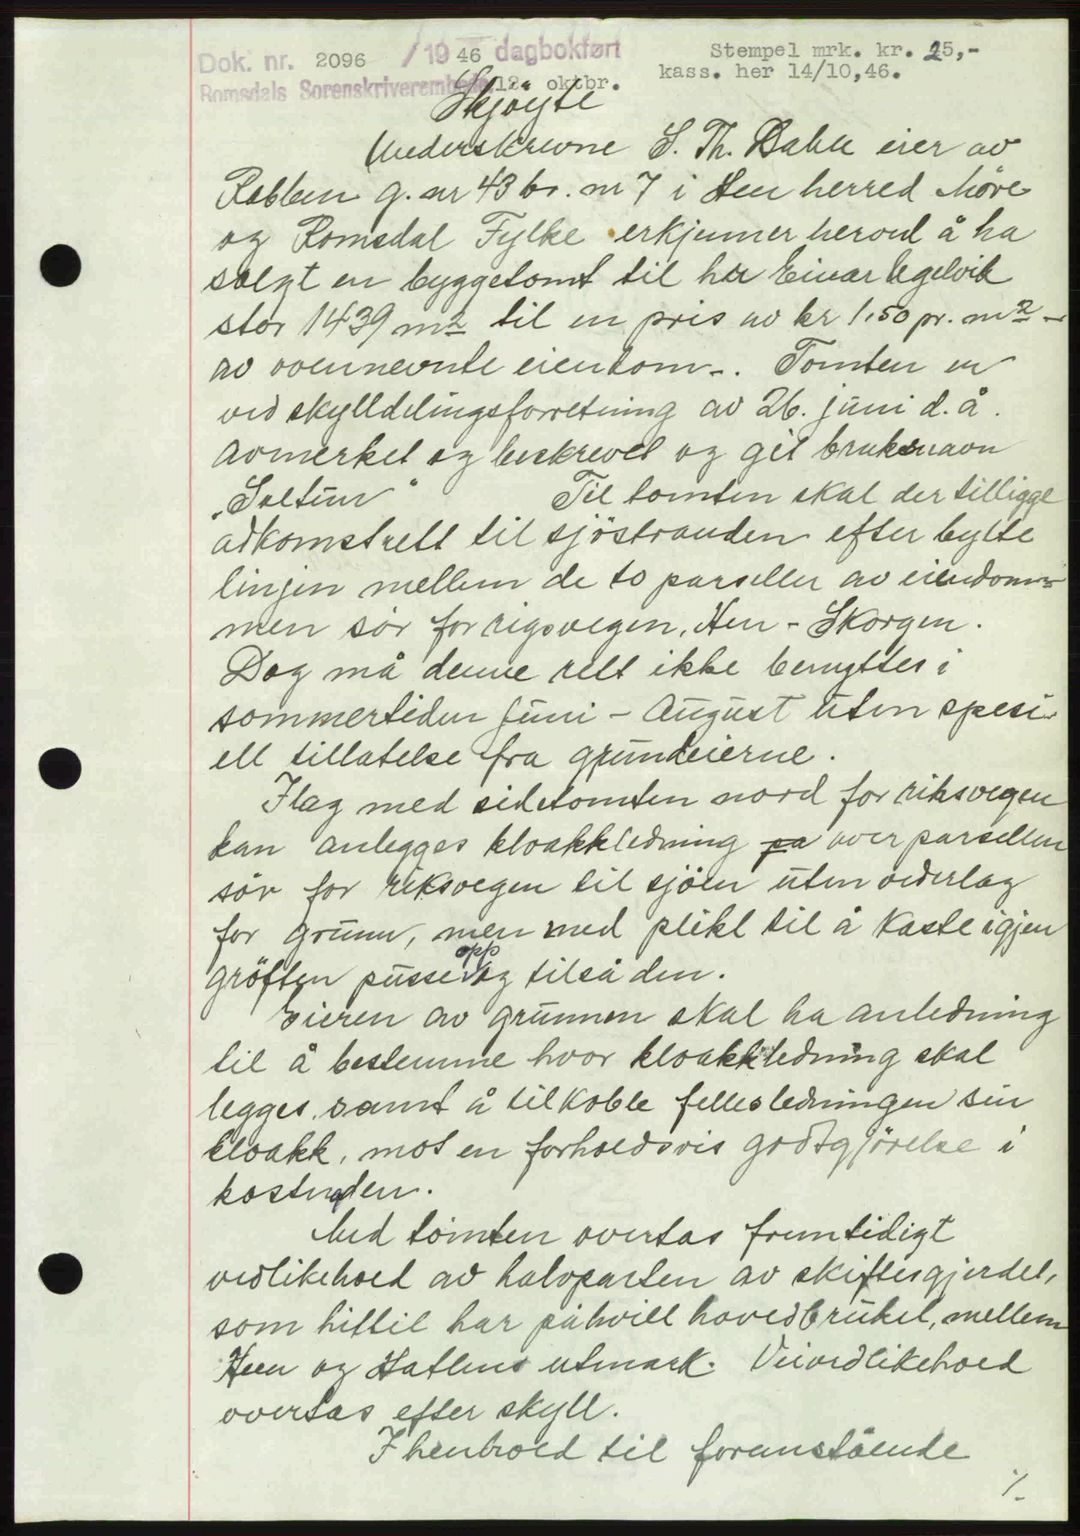 Dok. nr. 2096 /19 46 dagbokført
Stempel mrk. kr. 25,-
Romsdals Sorenskriverembede 12. oktbr.
kass. her 14/10,46.
Skjøyte
Underskrevne S. Th. Dahle eier av
Rabben g. nr 43 br. nr 7 i Hen herred Möre
og Romsdal Fylke erkjenner herved å ha
solgt en byggetomt til hr Einar
stor 1439 m2 til en pris av kr 1.50 pr. m2 -
av ovennevnte eiendom -. Tomten er
ved skylddelingsforretning av 26. juni d.å.
avmerket og beskrevet og git bruksnavn
„Soltun" Til tomten skal der tilligge
adkomstrett til sjöstranden efter bytte
linjen mellem de to parseller av eiendom-
men sör for rigsvegen, Hen - Skorgen.
Dog må denne rett ikke benyttes i
sommertiden juni - August uten spesi-
ell tillatelse fra grunneierne.
I lag med sidetomten nord for riksvegen
kan anlegges kloakkledning på over parsellen
sör for riksvegen til sjöen uten vederlag
for grunn, men med plikt til å kaste igjen
gröften pusse opp og tilså den.
Eieren av grunnen skal ha anledning
til å bestemme hvor kloakkledning skal
legges samt å tilkoble fellesledningen sin
kloakk, mot en forholdsvis godtgjörelse i
kostnaden.
Med tomten overtas fremtidigt
vedlikehold av halvparten av skiftesgjerdet,
som hittil har påhvilt hovedbruket, mellem
Hen og Hatlens utmark. Veivedlikehold
overtas efter skyll.
I henhold til foranstående
%